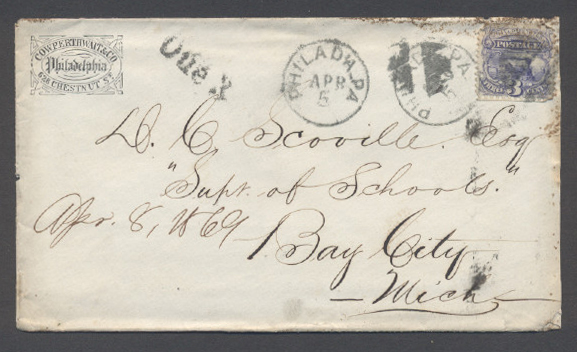 COWPERTHWAIT & CO.
Philadelphia
628 CHESTNUT ST.
PHILADA. PA
APR
5
PHILADA. PA
POSTAGE
3
D. C. Scoville. Esq
"Supt. of Schools."
Apr. 8, 1869
Bay City
Mich